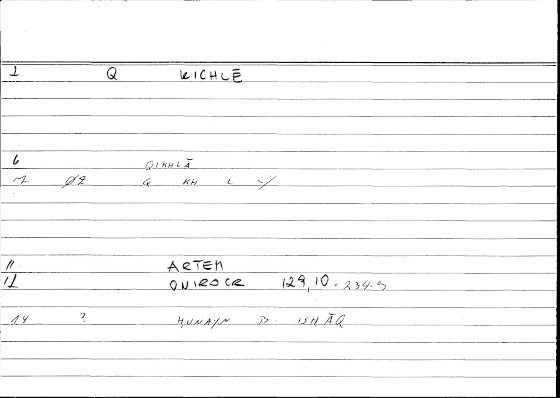 1 Q KICHLĒ
6 QIKHLĀ
7 Ø2 Q KH L Y
11 ARTEM
12 ONIROCR 129,10 . 234.9
14 ? HUNAYN B. ISHĀQ